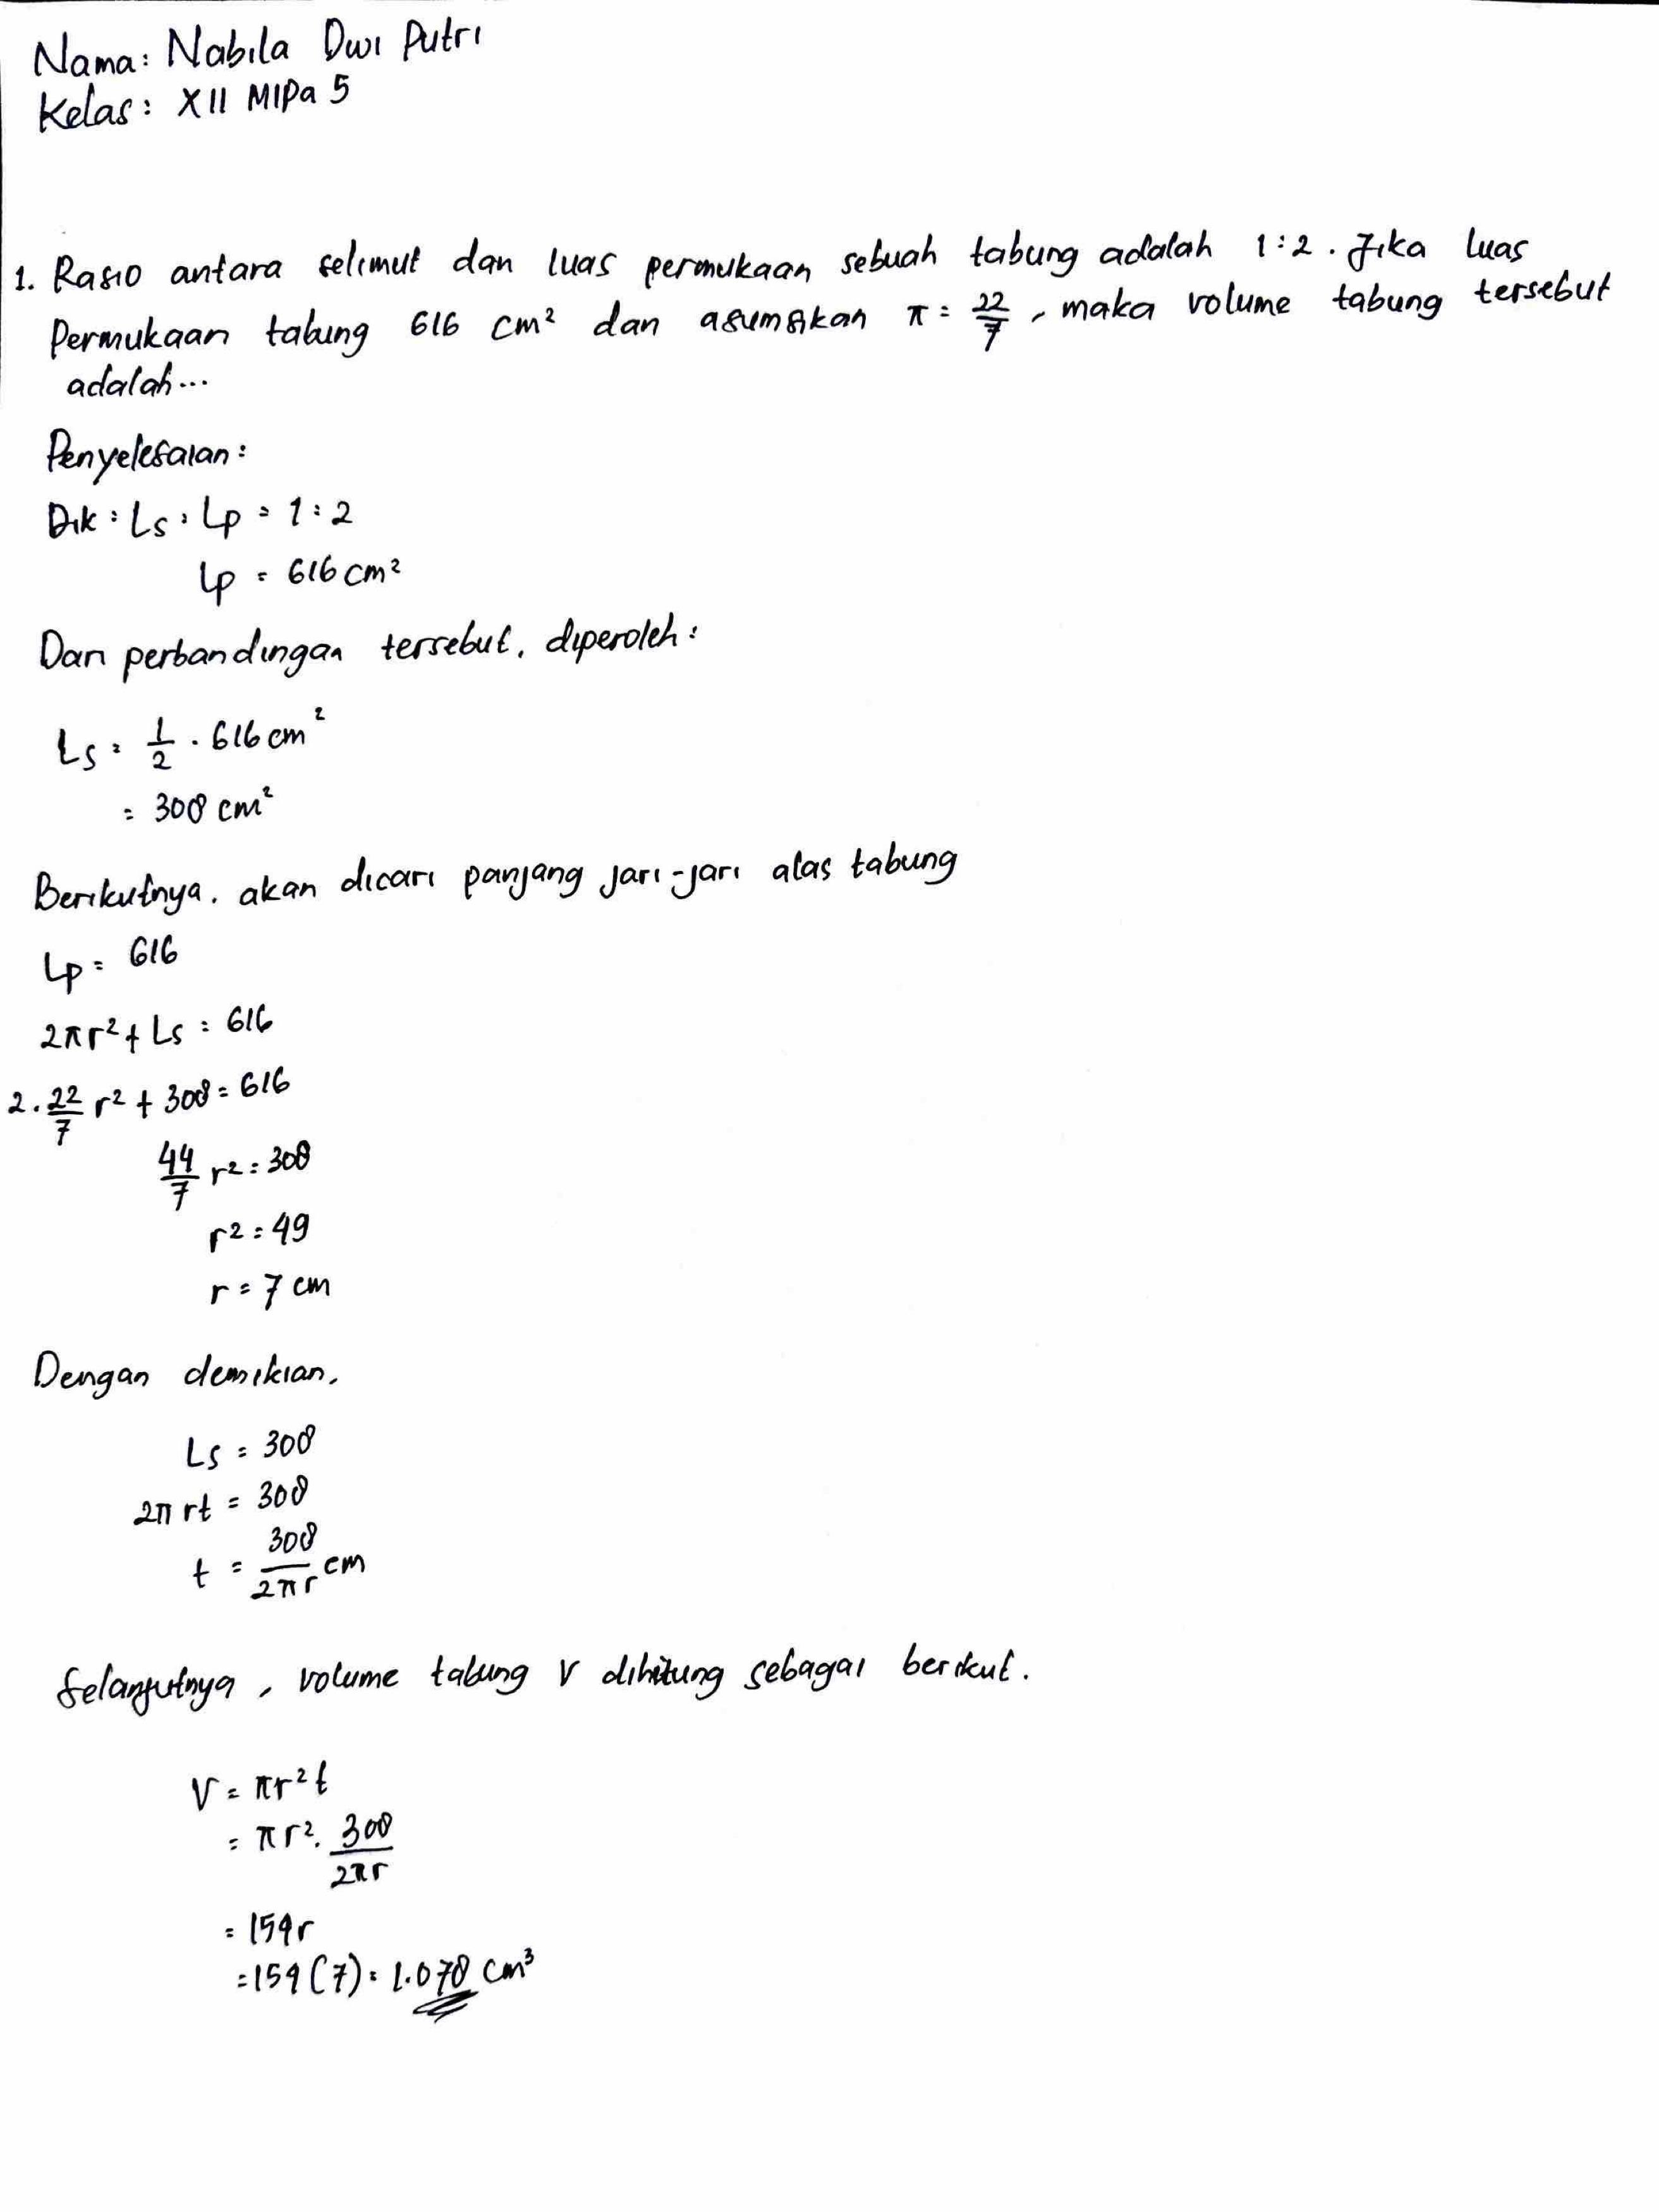 Nama: Nabila Dwi Putri
Kelas: XII MIPa 5
1. Rasio antara selimut dan luas permukaan sebuah tabung adalah 1:2. Jika luas
Permukaan tabung 616 cm² dan asumsikan π = 22/7, maka volume tabung tersebut
adalah...
Penyelesaian:
Dik: Ls : Lp = 1:2
Lp = 616 cm²
Dari perbandingan tersebut, diperoleh:
Ls = 1/2 . 616 cm²
= 308 cm²
Berikutnya, akan dicari panjang jari-jari alas tabung
Lp = 616
2πr² + Ls = 616
2. 22/7 r² + 308 = 616
44/7 r² = 308
r² = 49
r = 7 cm
Dengan demikian,
Ls = 308
2π rt = 308
t = 308/2πr cm
Selanjutnya, volume tabung V dihitung sebagai berikut.
V = πr²t
= πr². 308/2πr
= 154r
= 154(7) = 1.078 cm³